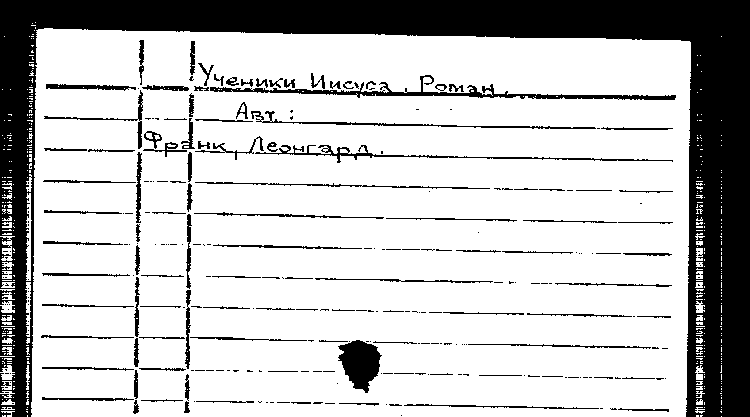 Ученики Иисуса. Роман.
Авт.:
Франк, Леонгард.